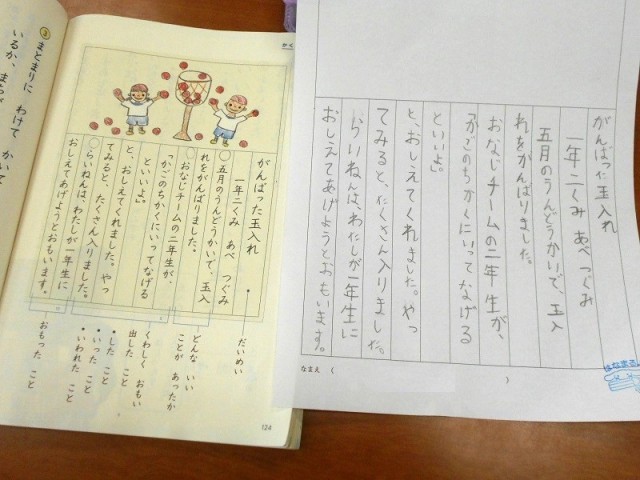 かく
③まとまりに わけて かいて
いるか、
がんばった玉入れ
一年二くみ あべ つぐみ
○五月のうんどうかいで、玉入
れをがんばりました。
○おなじチームの二年生が、
「かごのちかくにいってなげる
といいよ。」
と、おしえてくれました。やっ
てみると、たくさん入りました。
○らいねんは、わたしが一年生に
おしえてあげようとおもいます。
だいめい
どんな いい
ことが あったか
くわしく おもい
出した こと
•した こと
•いった こと
•いわれた こと
おもった こと
124
がんばった玉入れ
一年二くみ あべ つぐみ
五月のうんどうかいで、玉入
れをがんばりました。
おなじチームの二年生が、
「かごのちかくにいってなげる
といいよ。」
と、おしえてくれました。やっ
てみると、たくさん入りました。
らいねんは、わたしが一年生に
おしえてあげようとおもいます。
なまえ( )
はなまる